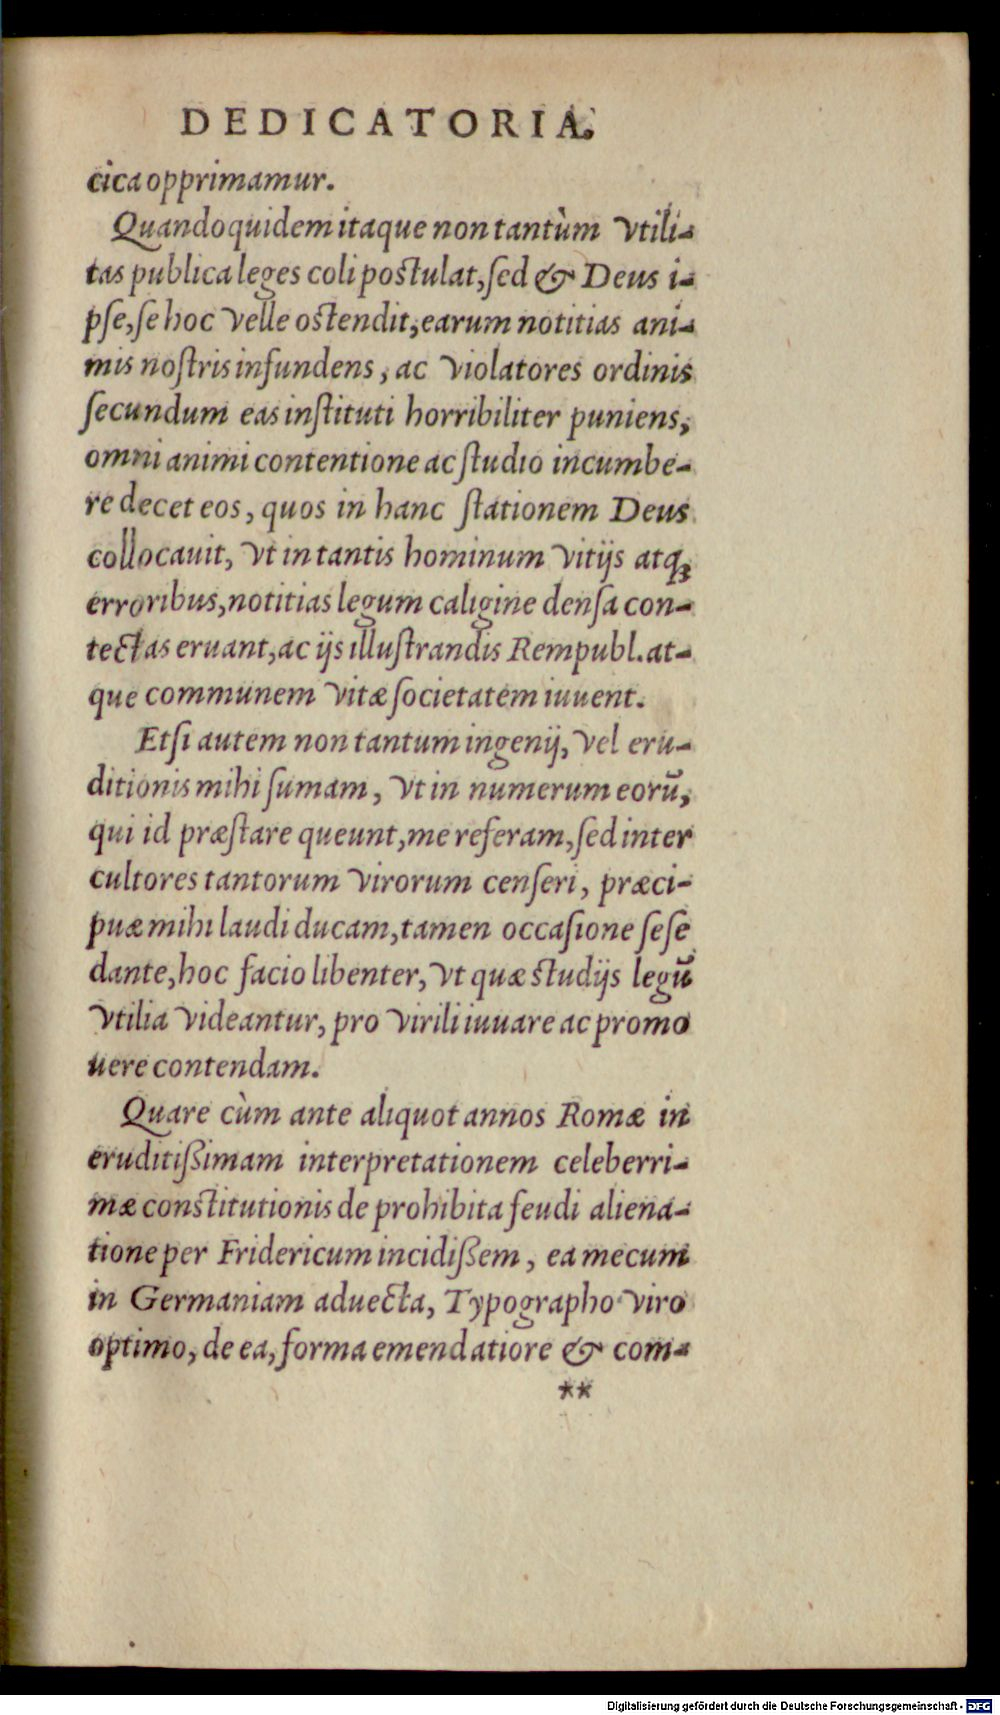 DEDICATORIA.
cica opprimamur.
Quandoquidem itaque non tantùm vtili-
tas publica leges coli postulat, ſed & Deus i-
pſe, ſe hoc velle ostendit, earum notitias ani-
mis noſtris infundens, ac violatores ordinis
ſecundum eas inſtituti horribiliter puniens,
omni animi contentione ac ſtudio incumbe-
re decet eos, quos in hanc ſtationem Deus
collocauit, vt in tantis hominum vitijs atq;
erroribus, notitias legum caligine denſa con-
tectas eruant, ac ijs illuſtrandis Rempubl. at-
que communem vitæ ſocietatem iuuent.
Etſi autem non tantum ingenij, vel eru-
ditionis mihi ſumam, vt in numerum eorū,
qui id præſtare queunt, me referam, ſed inter
cultores tantorum virorum cenſeri, præci-
puæ mihi laudi ducam, tamen occaſione ſeſe
dante, hoc facio libenter, vt quæ studijs legū
vtilia videantur, pro virili iuuare ac promo
uere contendam.
Quare cùm ante aliquot annos Romæ in
eruditißimam interpretationem celeberri-
mæ constitutionis de prohibita feudi aliena-
tione per Fridericum incidißem, ea mecum
in Germaniam aduecta, Typographo viro
optimo, de ea, forma emendatiore & com-
**
Digitalisierung gefördert durch die Deutsche Forschungsgemeinschaft - DFG